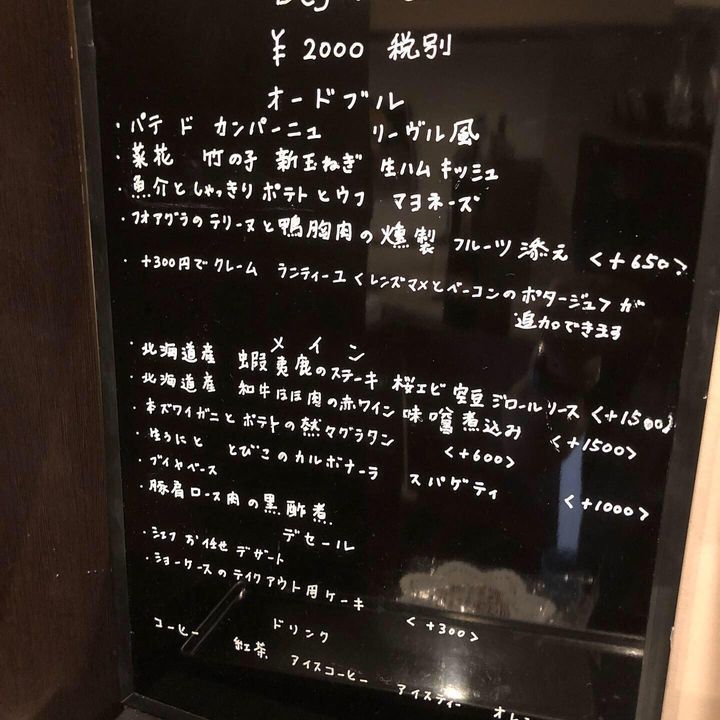 ¥2000 税別
オードブル
・パテ ド カンパーニュ リーヴル風
・菜花 竹の子 新玉ねぎ 生ハム キッシュ
・魚介としゃっきりポテトとウフ マヨネーズ
・フォアグラのテリーヌと鴨胸肉の燻製 フルーツ添え <+650>
・+300円でクレーム ランティーユ<レンズマメとベーコンのポタージュ>が
追加できます
メイン
・北海道産 蝦夷鹿のステーキ 桜エビ 空豆 ジロールソース <+1500>
・北海道産 和牛ほほ肉の赤ワイン味噌煮込み <+1500>
・本ズワイガニとポテトの熱々グラタン <+600>
・生うにと とびこのカルボナーラ スパゲティ <+1000>
・ブイヤベース
・豚肩ロース肉の黒酢煮
デセール
・シェフお任せデザート
・ショーケースのテイクアウト用ケーキ <+300>
ドリンク
コーヒー 紅茶 アイスコーヒー アイスティー